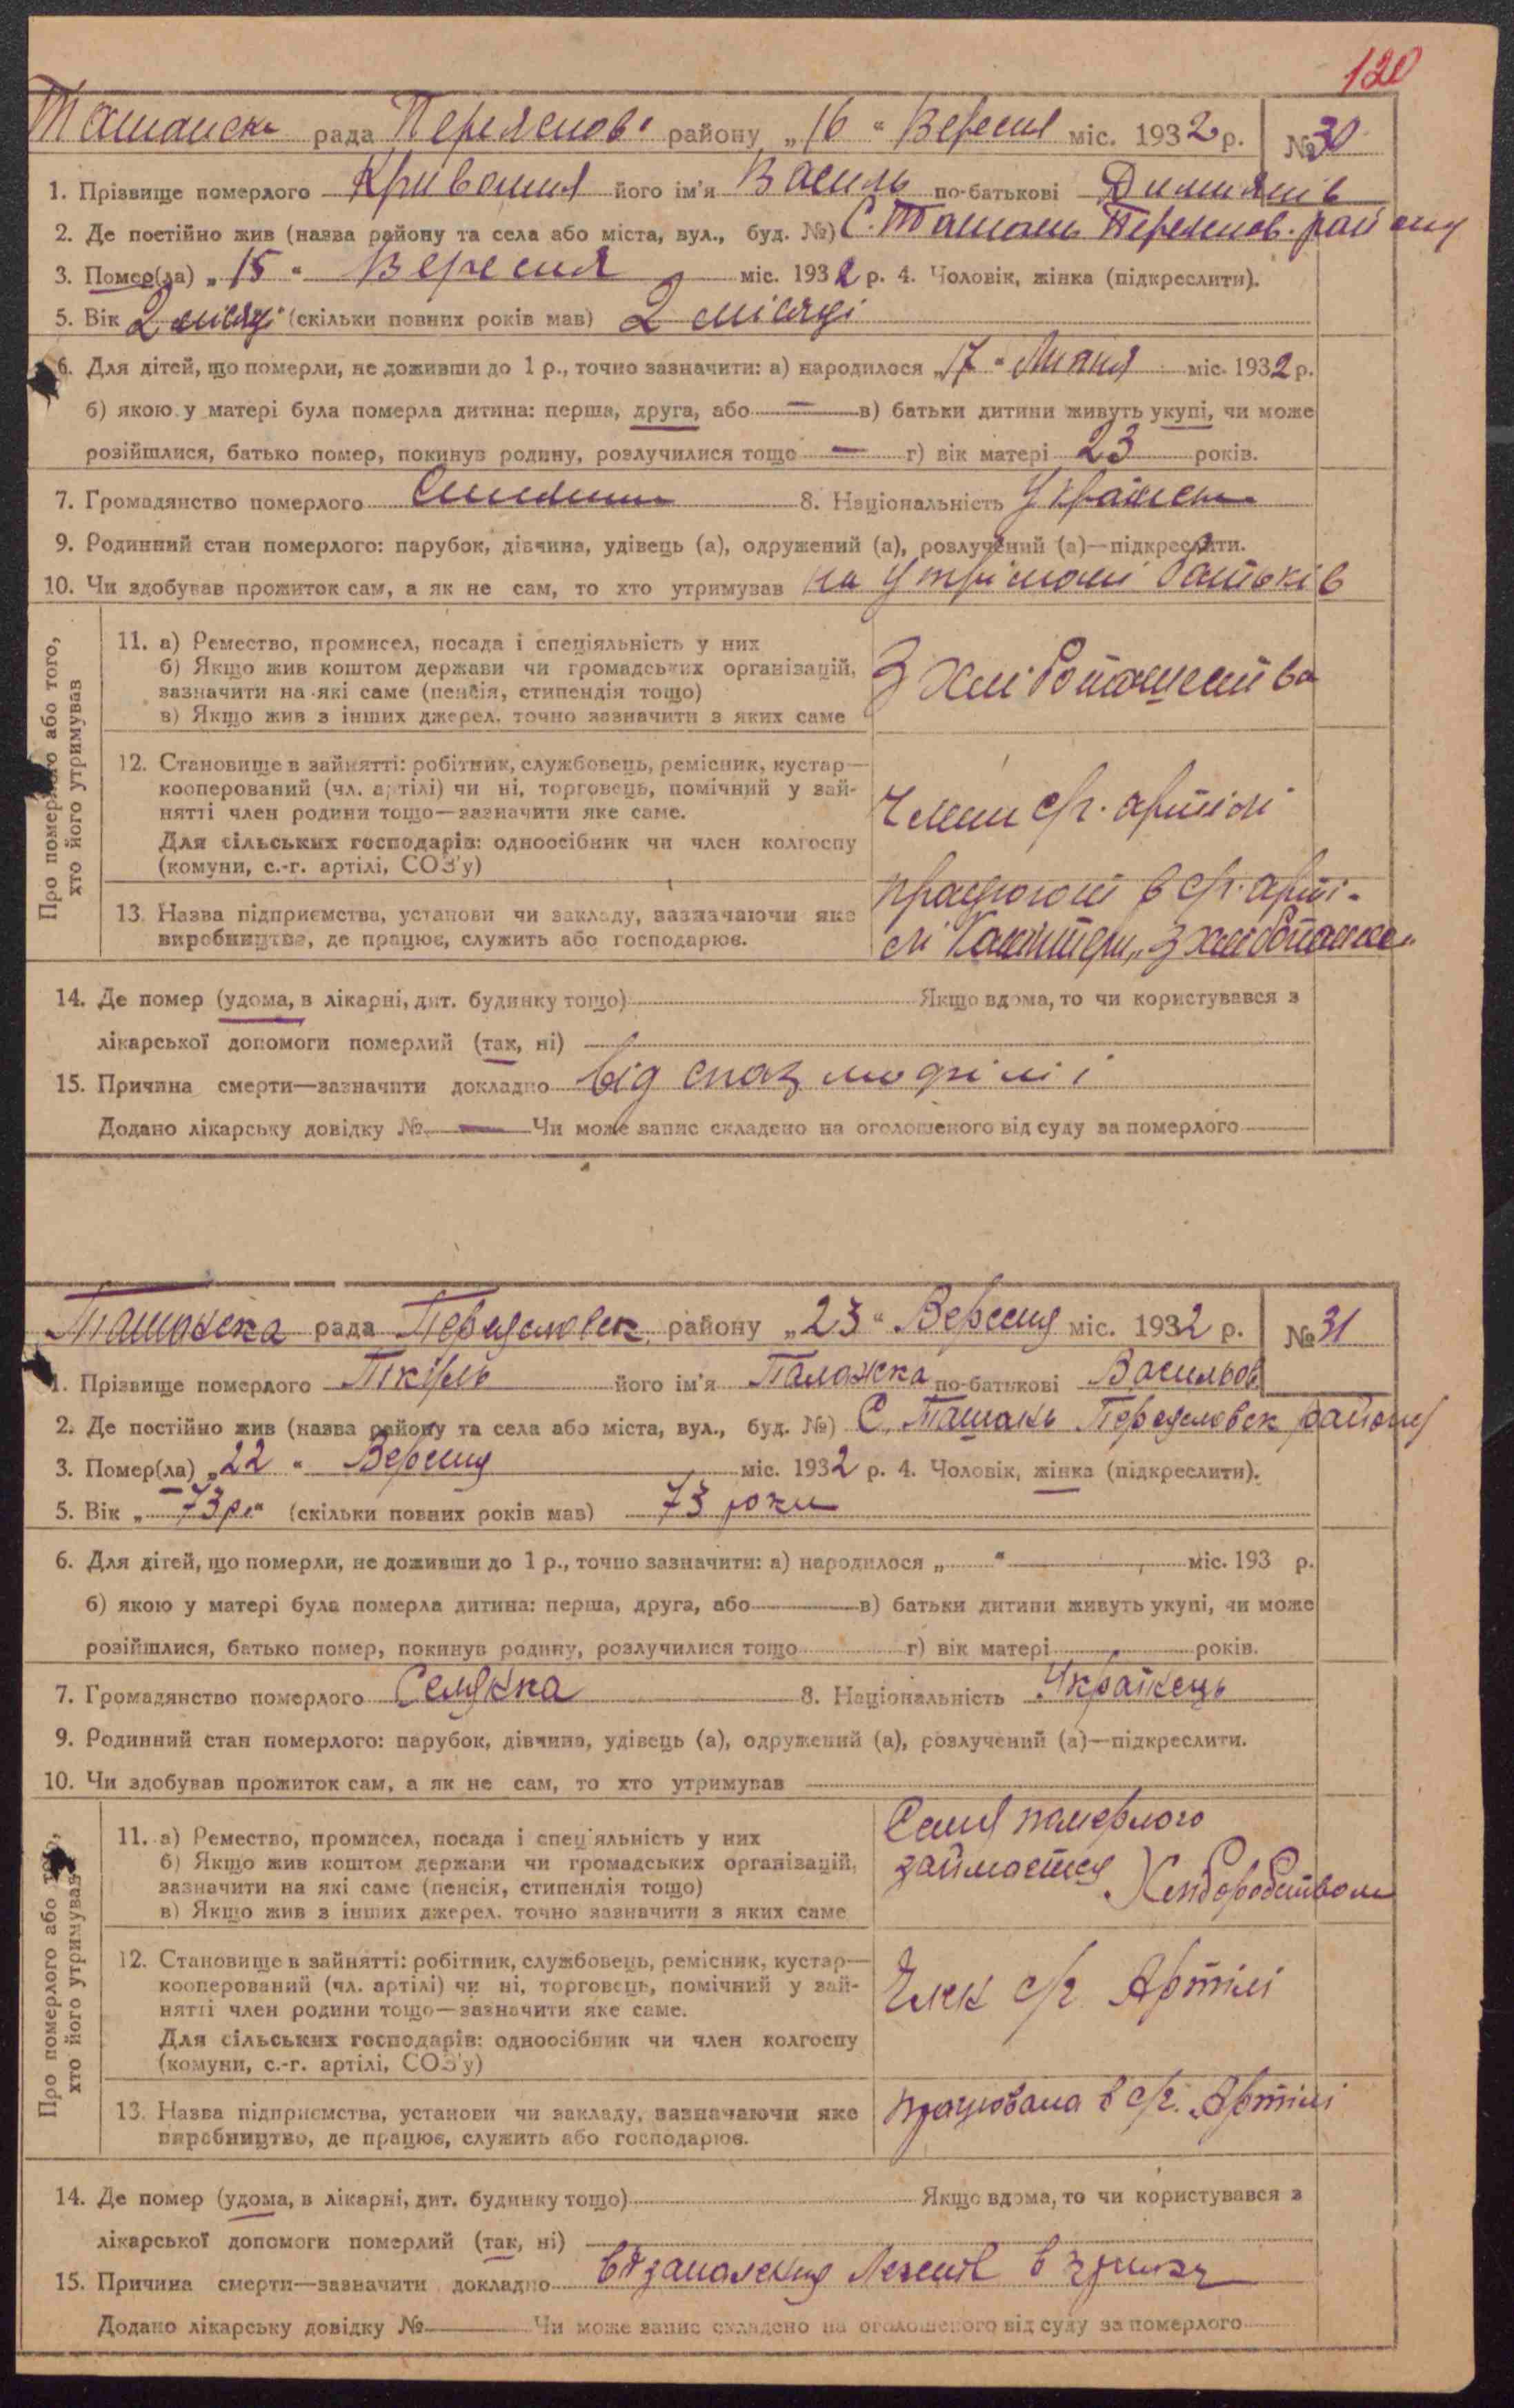 120
Ташанськ рада Переяслов. району „16“ Вересня міс. 1932 р. № 30
1. Прізвище померлого його ім'я Василь по-батькові
2. Де постійно жив (назва району та села або міста, вул., буд. №) С. Ташань Переяслов. району
3. Помер(ла) „15“ Вересня міс. 1932 р. 4. Чоловік, жінка (підкреслити).
5. Вік 2 місяці (скільки повних років мав) 2 місяці
6. Для дітей, що померли, не доживши до 1 р., точно зазначити: а) народилося „17“ Липня міс. 1932 р.
б) якою у матері була померла дитина: перша, друга, або — в) батьки дитини живуть укупі, чи може
розійшлися, батько помер, покинув родину, розлучилися тощо — г) вік матері 23 років.
7. Громадянство померлого 8. Національність Українець
9. Родинний стан померлого: парубок, дівчина, удівець (а), одружений (а), розлучений (а)—підкреслити.
10. Чи здобував прожиток сам, а як не сам, то хто утримував на утримані батьків
Про померлого або того,
хто його утримував
11. а) Ремество, промисел, посада і спеціяльність у них
б) Якщо жив коштом держави чи громадських організацій,
зазначити на які саме (пенсія, стипендія тощо)
в) Якщо жив з інших джерел, точно зазначити з яких саме
З хлібопашества
12. Становище в зайнятті: робітник, службовець, ремісник, кустар—
кооперований (чл. артілі) чи ні, торговець, помічний у зай-
нятті член родини тощо—зазначити яке саме.
Для сільських господарів: одноосібник чи член колгоспу
(комуни, с.-г. артілі, СОЗ'у)
Член с/г. артілі
13. Назва підприємства, установи чи закладу, зазначаючи яке
виробництво, де працює, служить або господарює.
працюют в с/г. арті-
лі
14. Де помер (удома, в лікарні, дит. будинку тощо) Якщо вдома, то чи користувався з
лікарської допомоги померлий (так, ні)
15. Причина смерти—зазначити докладно від спазмофілії
Додано лікарську довідку № — Чи може запис складено на оголошеного від суду за померлого
Ташанська рада Переяславск. району „23“ Вересня міс. 1932 р. № 31
1. Прізвище померлого його ім'я Палажка по-батькові Васильов
2. Де постійно жив (назва району та села або міста, вул., буд. №) С. Ташань Переяславск району
3. Помер(ла) „22“ Вересня міс. 1932 р. 4. Чоловік, жінка (підкреслити).
5. Вік „73 р.“ (скільки повних років мав) 73 роки
6. Для дітей, що померли, не доживши до 1 р., точно зазначити: а) народилося „ “ міс. 193 р.
б) якою у матері була померла дитина: перша, друга, або в) батьки дитини живуть укупі, чи може
розійшлися, батько помер, покинув родину, розлучилися тощо г) вік матері років.
7. Громадянство померлого Селянка 8. Національність Українець
9. Родинний стан померлого: парубок, дівчина, удівець (а), одружений (а), розлучений (а)—підкреслити.
10. Чи здобував прожиток сам, а як не сам, то хто утримував
Про померлого або того,
хто його утримував
11. а) Ремество, промисел, посада і спеціяльність у них
б) Якщо жив коштом держави чи громадських організацій,
зазначити на які саме (пенсія, стипендія тощо)
в) Якщо жив з інших джерел, точно зазначити з яких саме
Семя померлого
займається Хліборобством
12. Становище в зайнятті: робітник, службовець, ремісник, кустар—
кооперований (чл. артілі) чи ні, торговець, помічний у зай-
нятті член родини тощо—зазначити яке саме.
Для сільських господарів: одноосібник чи член колгоспу
(комуни, с.-г. артілі, СОЗ'у)
Член с/г Артілі
13. Назва підприємства, установи чи закладу, зазначаючи яке
виробництво, де працює, служить або господарює.
працювала в с/г. Артілі
14. Де помер (удома, в лікарні, дит. будинку тощо) Якщо вдома, то чи користувався з
лікарської допомоги померлий (так, ні)
15. Причина смерти—зазначити докладно
Додано лікарську довідку № Чи може запис складено на оголошеного від суду за померлого